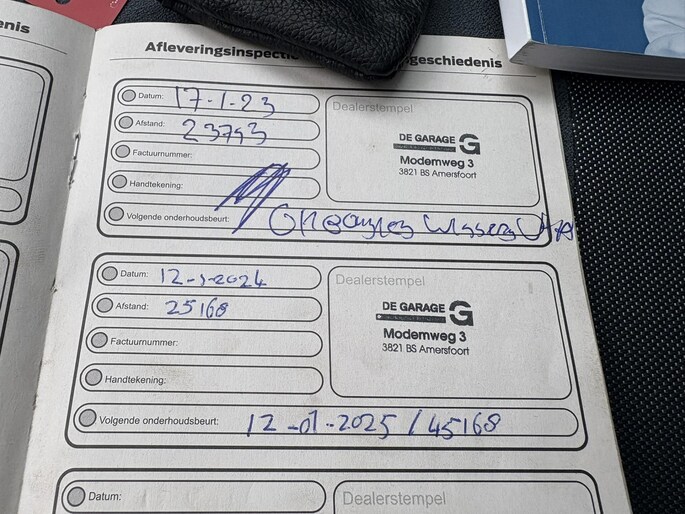 enis
Afleveringsinspectie
sgeschiedenis
Datum: 17-1-23
Afstand: 23793
Factuurnummer:
Handtekening:
Volgende onderhoudsbeurt:
Dealerstempel
DE GARAGE G
Modemweg 3
3821 BS Amersfoort
Datum: 12-1-2024
Afstand: 25168
Factuurnummer:
Handtekening:
Volgende onderhoudsbeurt: 12-01-2025 / 45168
Dealerstempel
DE GARAGE G
Modemweg 3
3821 BS Amersfoort
Datum:
Dealerstempel